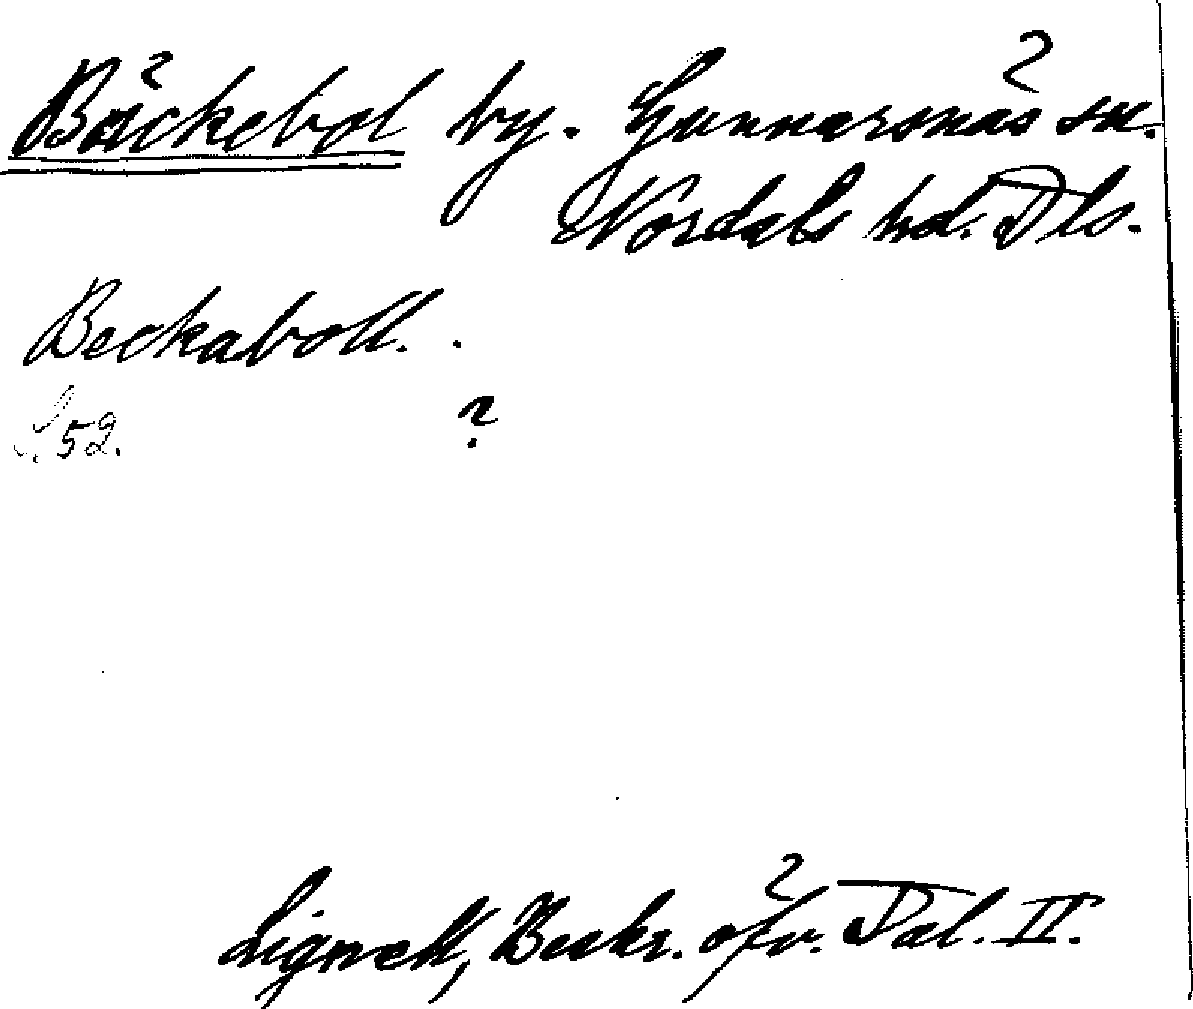 Bäckebol by. Gunnarsnäs sn.
Nordals hd. Dls.
Beckaboll. .
S. 52. ?
Lignell, Beskr. öfv. Dal. II.